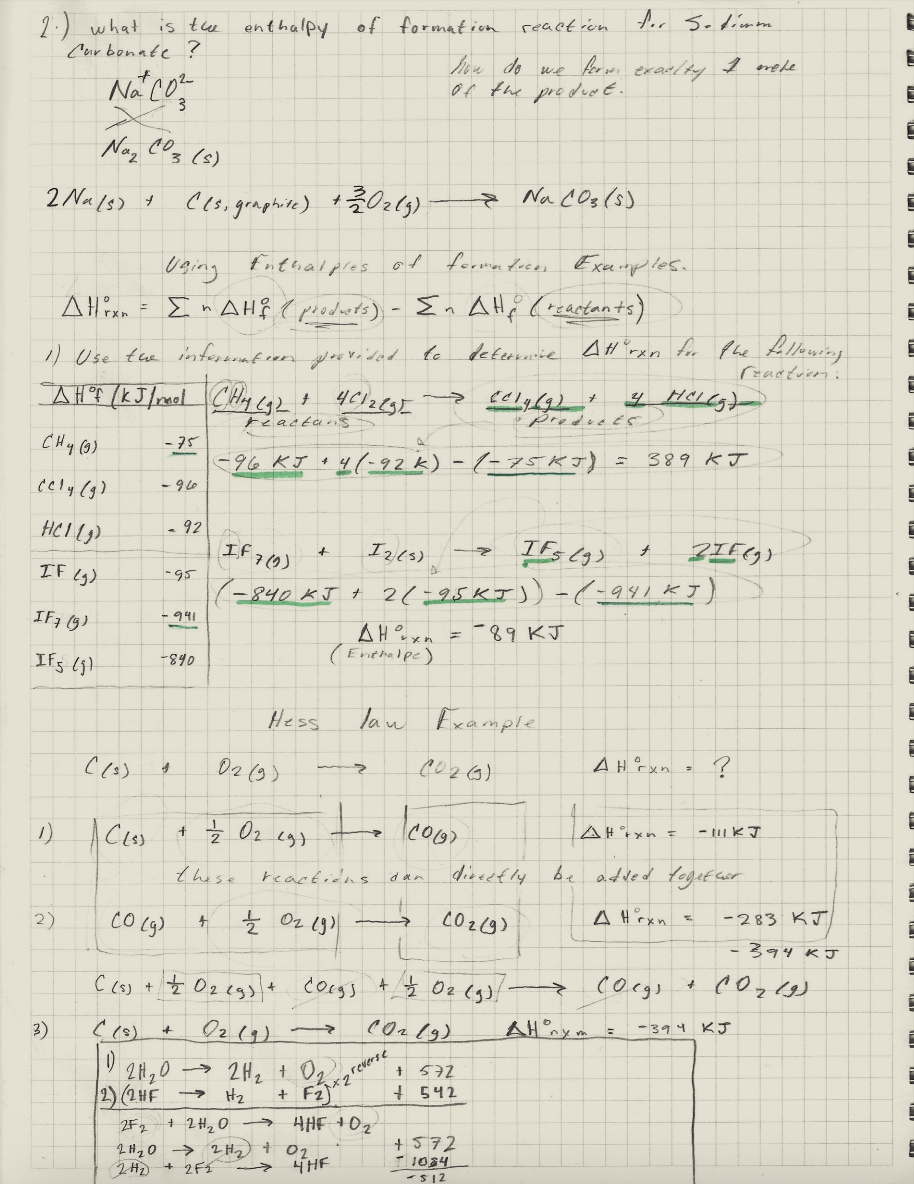 2.) what is the enthalpy of formation reaction for Sodium
Carbonate ?
how do we form exactly 1 mole
of the product.
Na⁺ CO₃²⁻
Na₂ CO₃ (s)
2Na(s) + C(s, graphite) + 3/2 O₂(g) → NaCO₃(s)
Using Enthalpies of formation Examples.
ΔH°rxn = Σ n ΔH°f (products) - Σ n ΔH°f (reactants)
1) Use the information provided to determine ΔH°rxn for the following
reaction.
ΔH°f (kJ/mol
CH₄(g) -75
CCl₄(g) -96
HCl(g) -92
IF(g) -95
IF₇(g) -941
IF₅(g) -840
CH₄(g) + 4Cl₂(g) → CCl₄(g) + 4 HCl(g)
reactans products
-96 KJ + 4(-92 k) - (-75 KJ) = 389 KJ
IF₇(g) + I₂(s) → IF₅(g) + 2IF(g)
(-840 KJ + 2(-95KJ)) - (-941 KJ)
ΔH°rxn = -89 KJ
(Enthalpe)
Hess law Example
C(s) + O₂(g) → CO₂(g) ΔH°rxn = ?
1) C(s) + 1/2 O₂(g) → CO(g) ΔH°rxn = -111KJ
these reactions can directly be added together
2) CO(g) + 1/2 O₂(g) → CO₂(g) ΔH°rxn = -283 KJ
-394 KJ
C(s) + 1/2 O₂(g) + CO(g) + 1/2 O₂(g) → CO(g) + CO₂(g)
3) C(s) + O₂(g) → CO₂(g) ΔH°rxm = -394 KJ
1) 2H₂O → 2H₂ + O₂ + 572
2) (2HF → H₂ + F₂) x2 reverse + 542
2F₂ + 2H₂O → 4HF + O₂
2H₂O → 2H₂ + O₂ +572
2H₂ + 2F₂ → 4HF -1084
-512